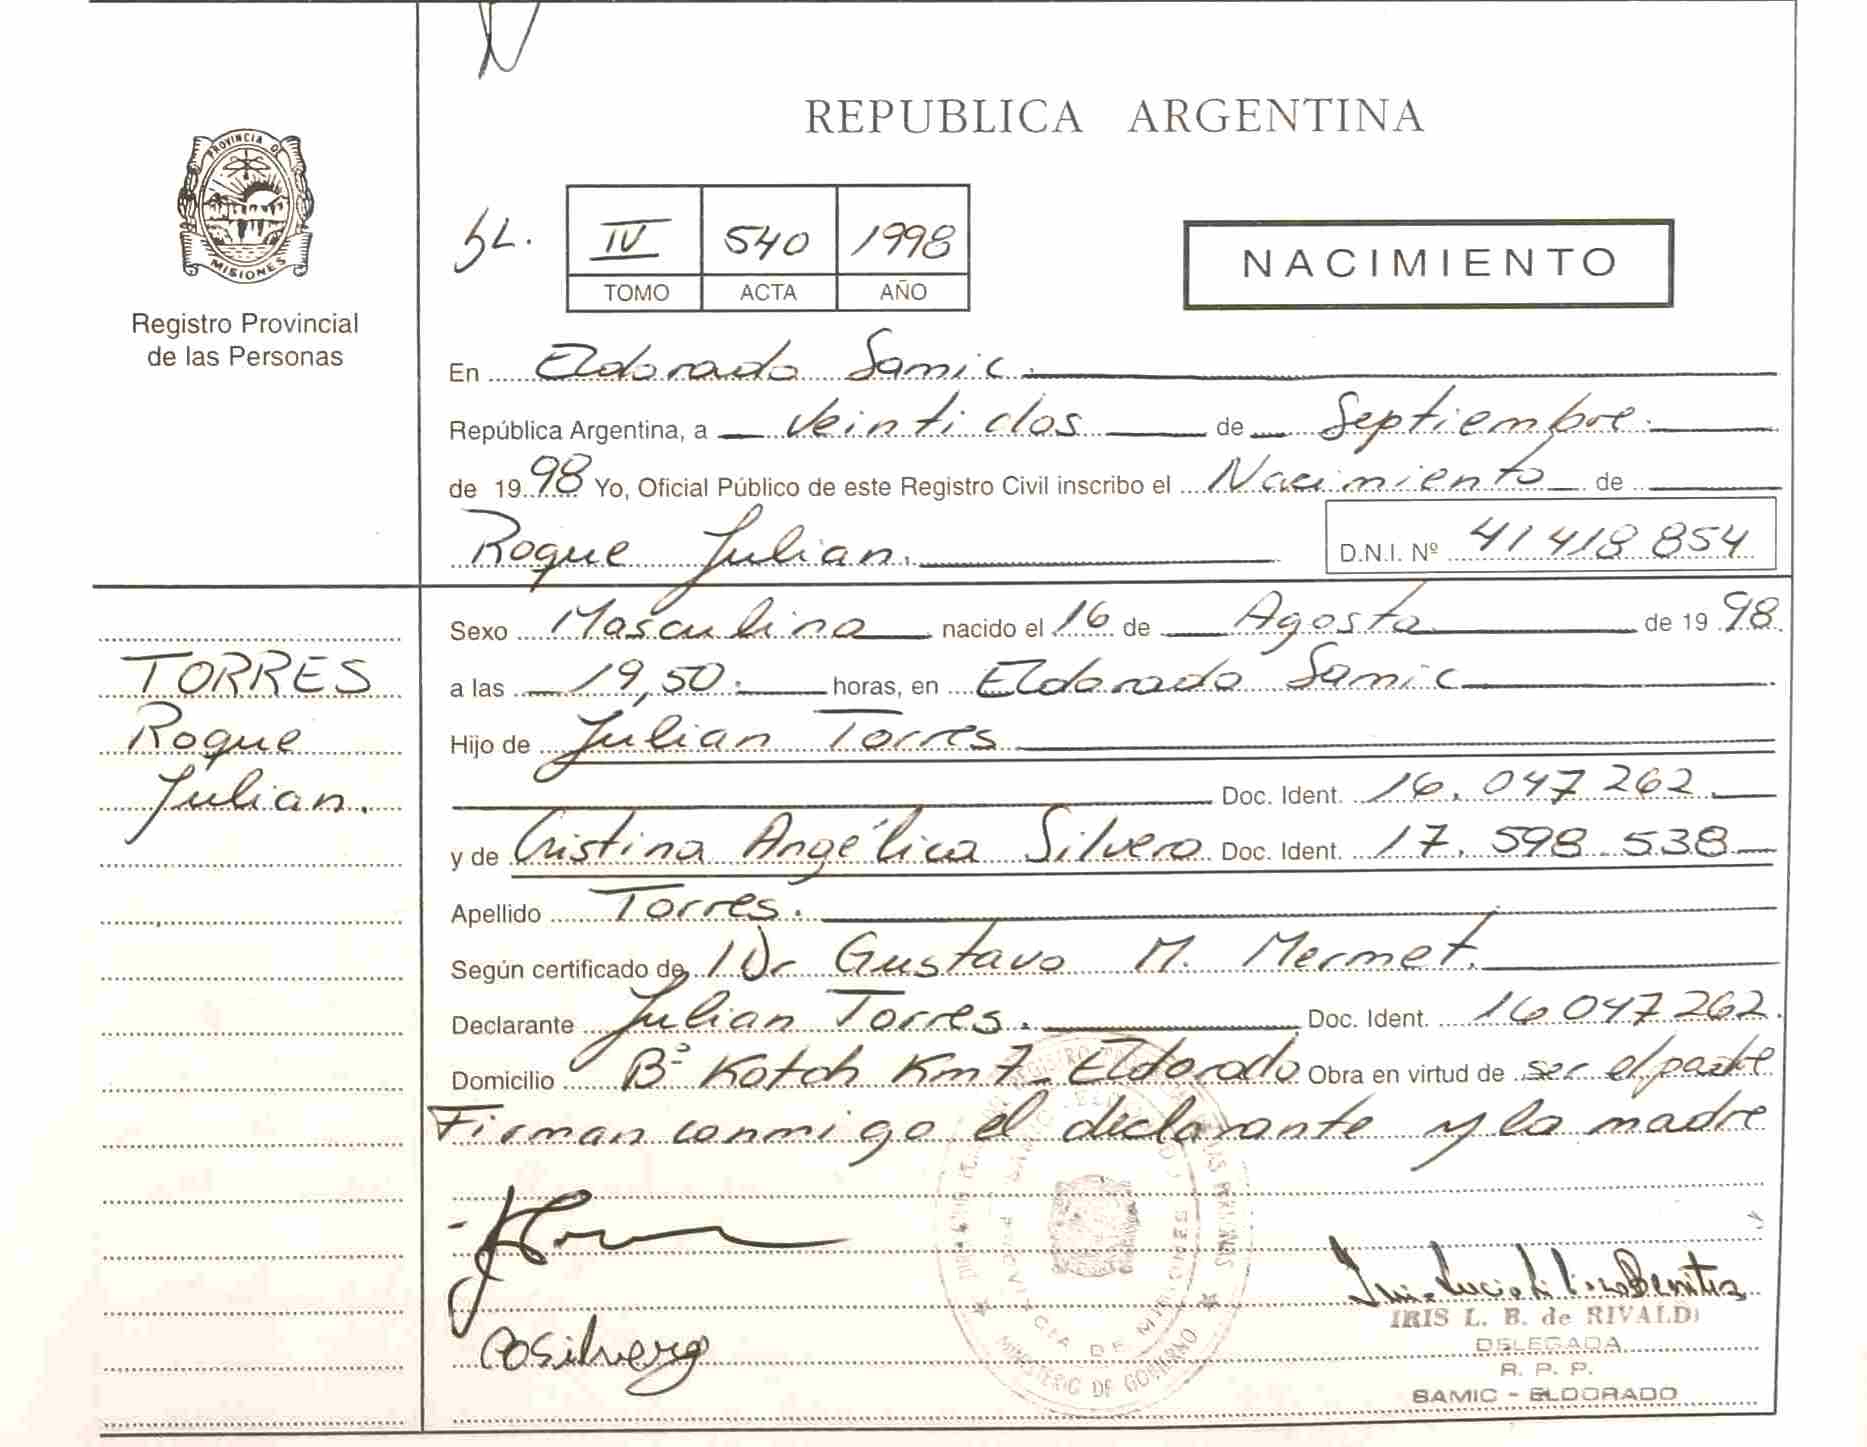 REPUBLICA ARGENTINA
PROVINCIA DE
MISIONES
Registro Provincial
de las Personas
IV 540 1998
TOMO ACTA AÑO
NACIMIENTO
En Eldorado Samic.
República Argentina, a veinti dos de Septiembre.
de 1998 Yo, Oficial Público de este Registro Civil inscribo el Nacimiento de
Roque Julian. D.N.I. Nº 41 418 854
TORRES
Roque
Julian.
Sexo Masculino nacido el 16 de Agosto de 1998.
a las 19,50. horas, en Eldorado Samic
Hijo de Julian Torres
Doc. Ident. 16.047 262.
y de Cristina Angélica Silvero Doc. Ident. 17.598 538
Apellido Torres.
Según certificado de Dr Gustavo M. Mermet.
Declarante Julian Torres. Doc. Ident. 16 047 262.
Domicilio Bº Kotch Km 7 Eldorado Obra en virtud de ser el padre
Firman conmigo el declarante y la madre
IRIS L. B. de RIVALDI
DELEGADA
R. P. P.
SAMIC - ELDORADO
MINISTERIO DE GOBIERNO